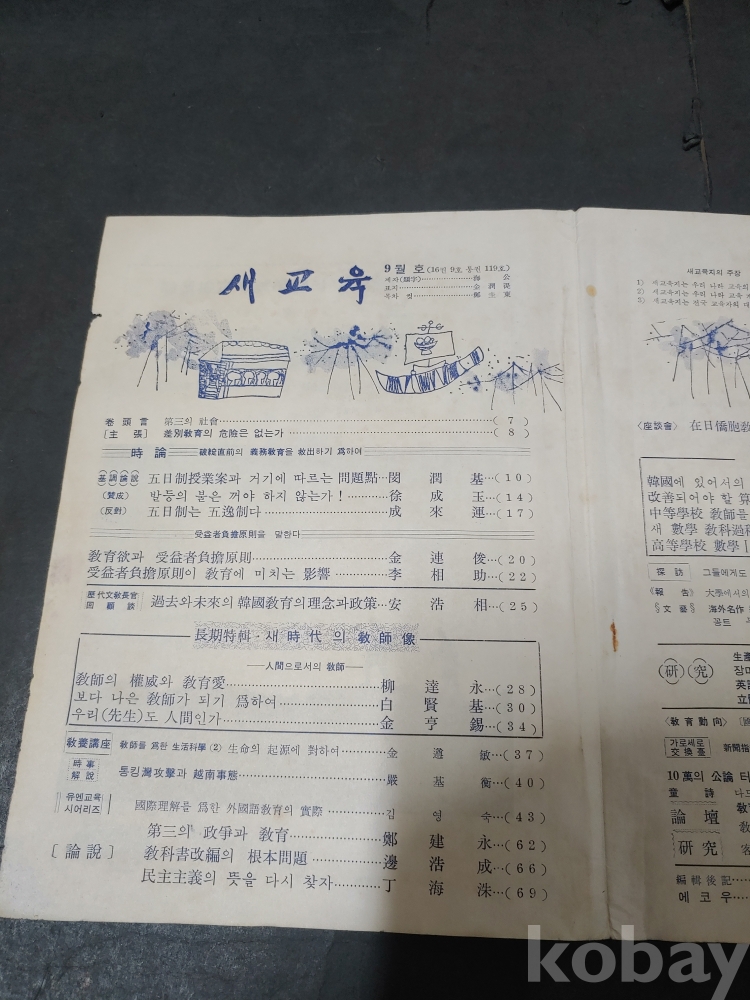 새교육
9월호 (16권 9호 통권 119호)
제자(題字)……………海 公
표지……………金 潤
목차 컷……………鄭
卷頭言 第三의 社會……………( 7 )
[主 張] 差別敎育의 危險은 없는가……………( 8 )
時論 破綻直前의 義務敎育을 救出하기 爲하여
基調論說 五日制授業案과 거기에 따르는 問題點…閔 潤 基…(10)
(贊成) 발등의 불은 꺼야 하지 않는가!…………徐 成 玉…(14)
(反對) 五日制는 五逸制다……………成 來 運…(17)
受益者負擔原則을 말한다
敎育欲과 受益者負擔原則……………金 連 俊…(20)
受益者負擔原則이 敎育에 미치는 影響…………李 相 助…(22)
歷代文敎長官 回顧談 過去와未來의韓國敎育의理念과政策…安 浩 相…(25)
長期特輯·새時代의 敎師像
──人間으로서의 敎師──
敎師의 權威와 敎育愛……………柳 達 永…(28)
보다 나은 敎師가 되기 爲하여……………白 賢 基…(30)
우리(先生)도 人間인가……………金 亨 錫…(34)
敎養講座 敎師를 爲한 生活科學 (2) 生命의 起源에 對하여…金 遵 敏…(37)
時事解說 통킹灣攻擊과 越南事態……………嚴 基 衡…(40)
유엔교육 시어리즈 國際理解를 爲한 外國語敎育의 實際……………김 영 숙…(43)
第三의 政爭과 敎育……………鄭 建 永…(62)
[論說] 敎科書改編의 根本問題……………邊 浩 成…(66)
民主主義의 뜻을 다시 찾자…………丁 海 洙…(69)
새교육지의 주장
1) 새교육지는 우리 나라 교육의
2) 새교육지는 우리 나라 교육
3) 새교육지는 전국 교육자의 대
〈座談會〉 在日僑胞敎
韓國에 있어서의
改善되어야 할 算
中等學校 敎師를
새 數學 敎科過程
高等學校 數學
探訪 그들에게도
《報 告》 大學에서의
《文藝》 海外名作
꽁트
(研)(究) 生産
장미
英語
立
〈敎育動向〉
가로세로 交換臺 新聞指
10萬의 公論 터
童 詩 나도
論壇 敎育
敎
研究 客
編輯後記……
에코우……
kobay